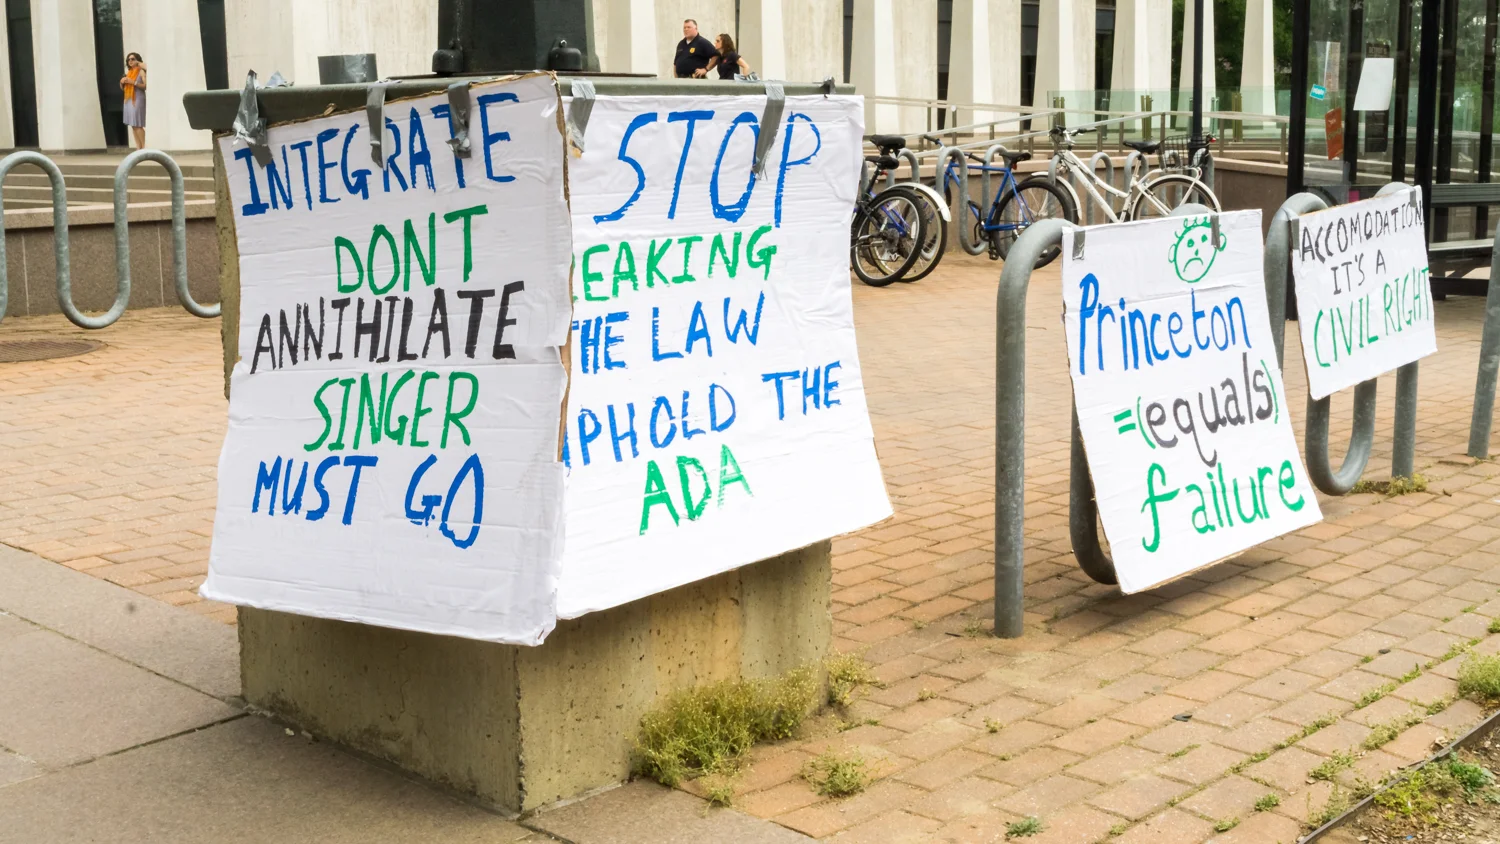 INTEGRATE
DONT
ANNIHILATE
SINGER
MUST GO
STOP
EAKING
HE LAW
PHOLD THE
ADA
Princeton
=(equals)
failure
ACCOMODATION
IT'S A
CIVIL RIGHT